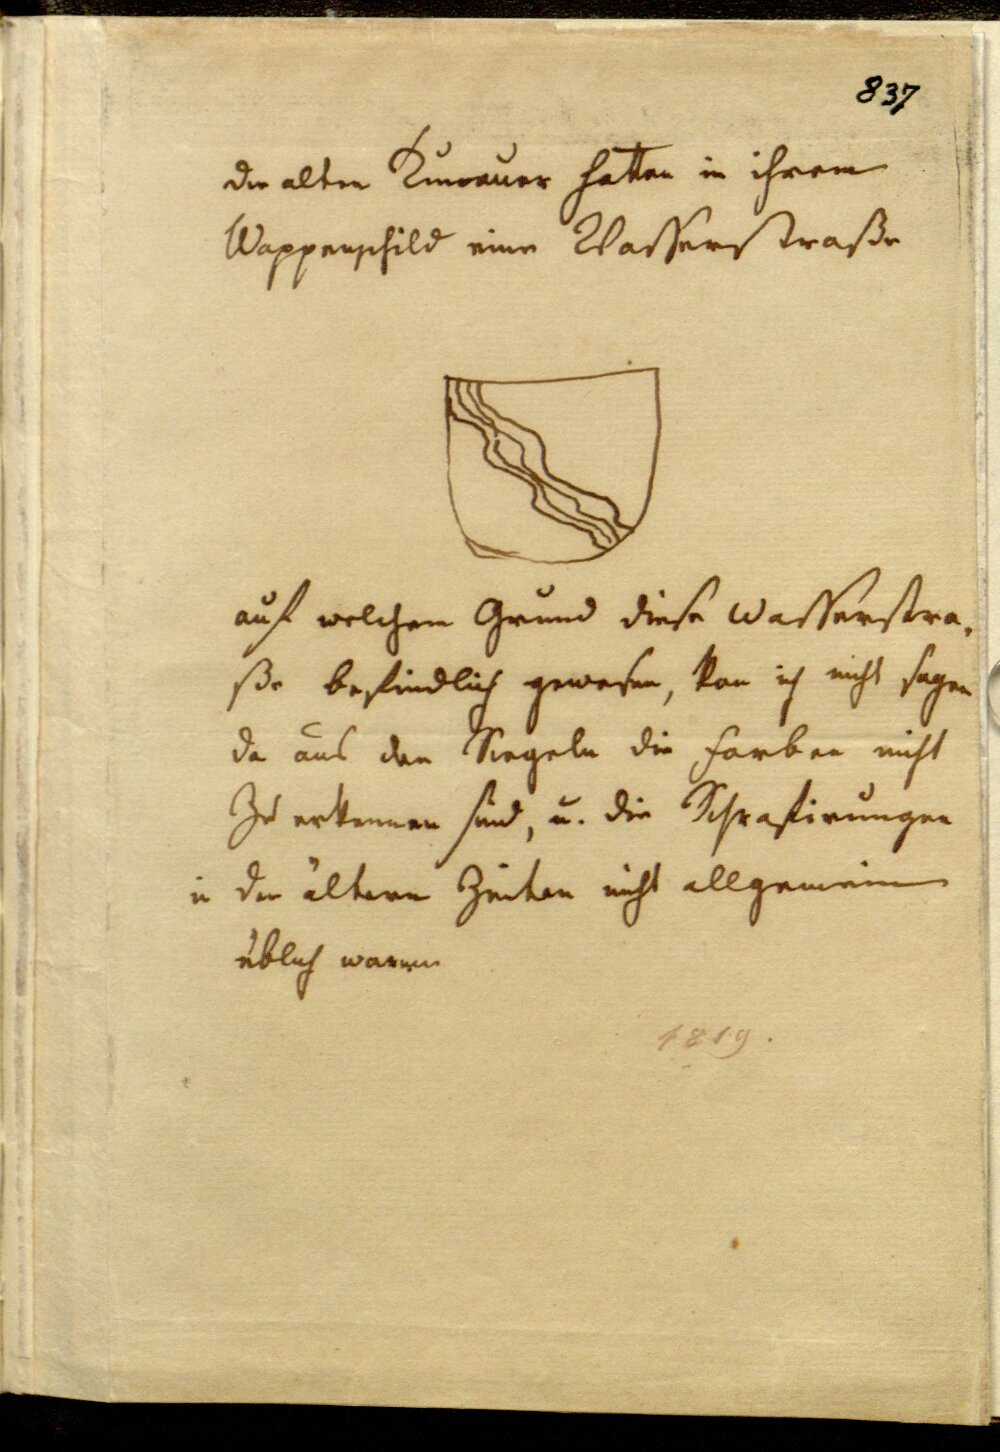 837
die alten Kunrauer hatten in ihrem
Wappenschild eine Wasserstraße
auf welchem Grund diese Wasserstra-
ße befindlich gewesen, kan ich nicht sagen
da aus den Siegeln die Farben nicht
Zu erkennen sind, u. die Schrafirungen
in den ältern Zeiten nicht allgemein
üblich waren
1819.